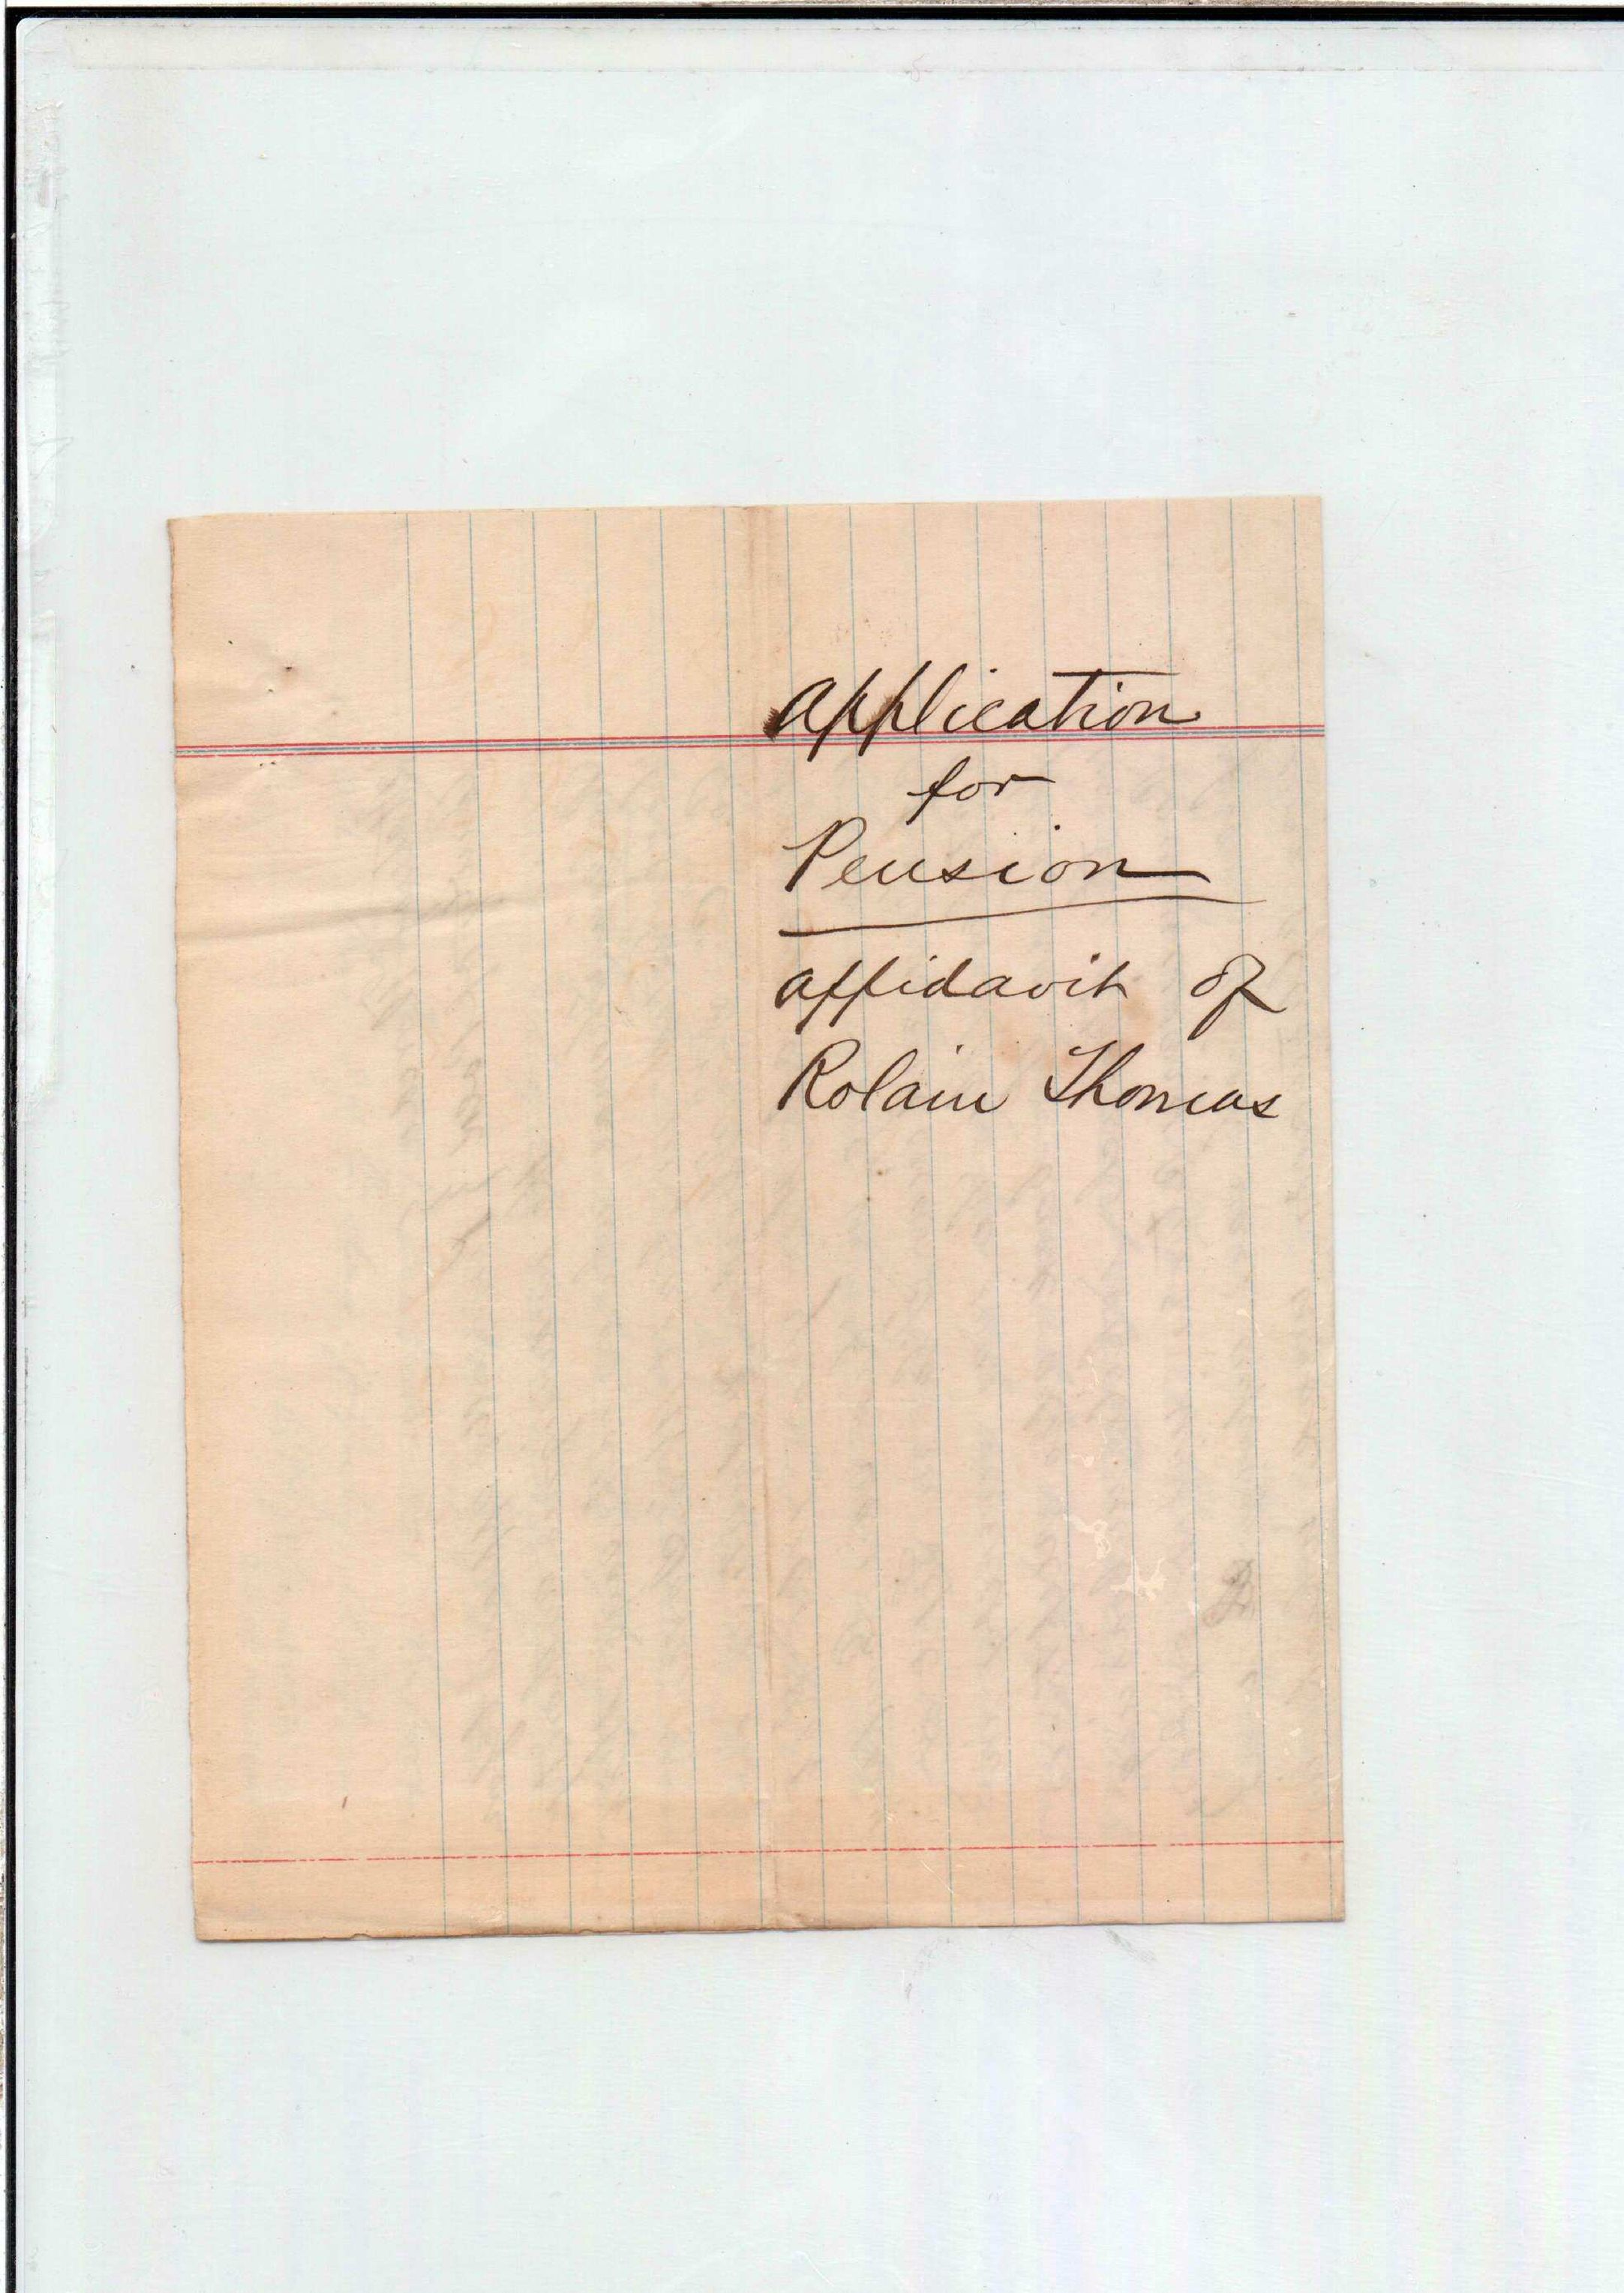 Application
for
Pension
affidavit of
Rolain Thomas